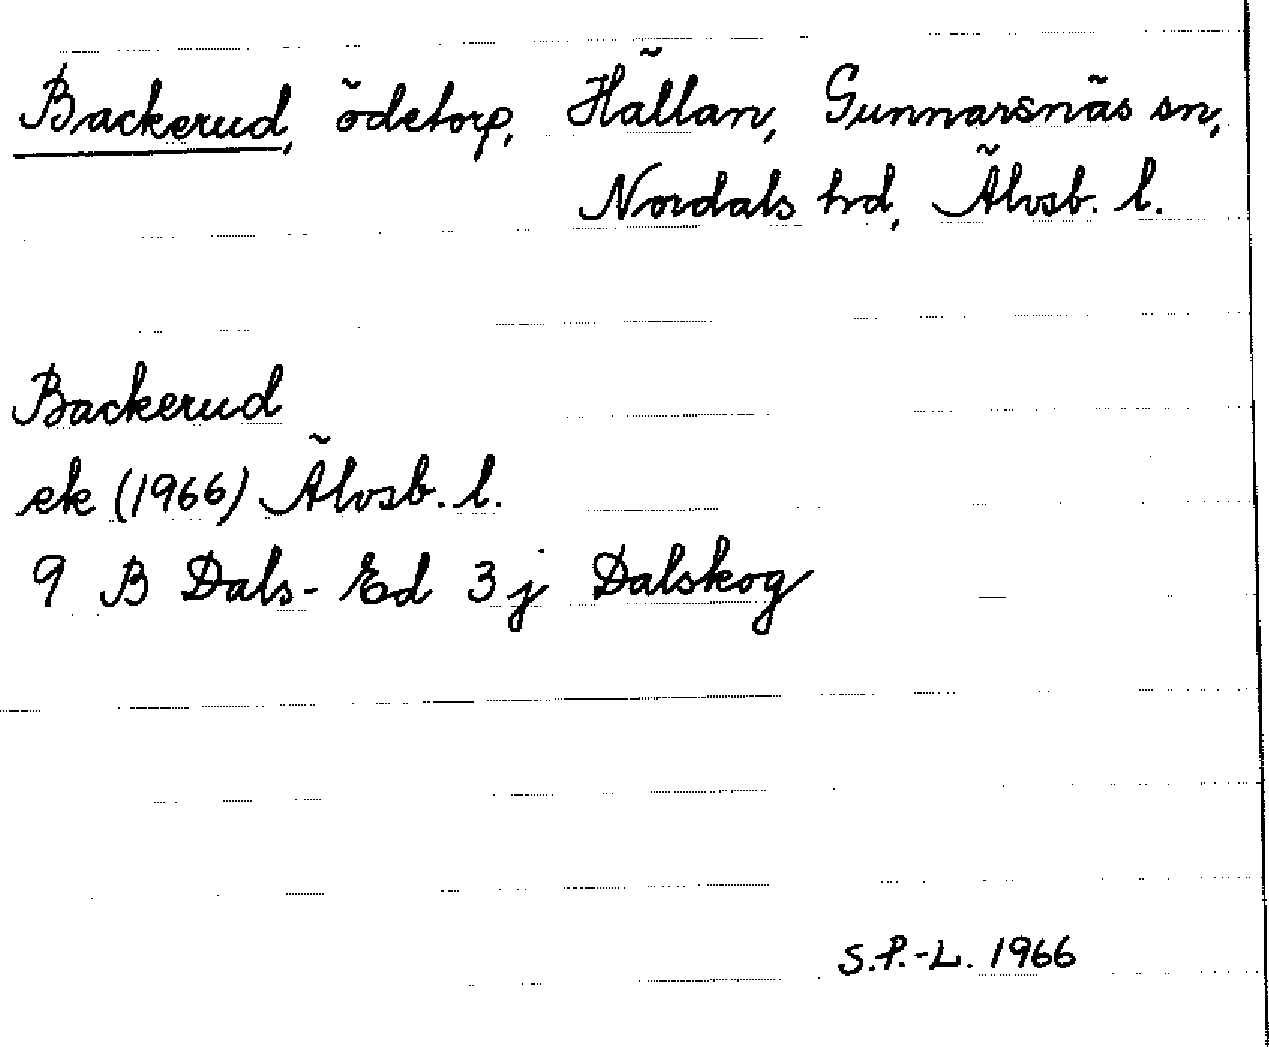 Backerud, ödetorp, Hällan, Gunnarsnäs sn,
Nordals hd, Älvsb. l.
Backerud
ek (1966) Älvsb. l.
9 B Dals-Ed 3j Dalskog
S.P.-L. 1966